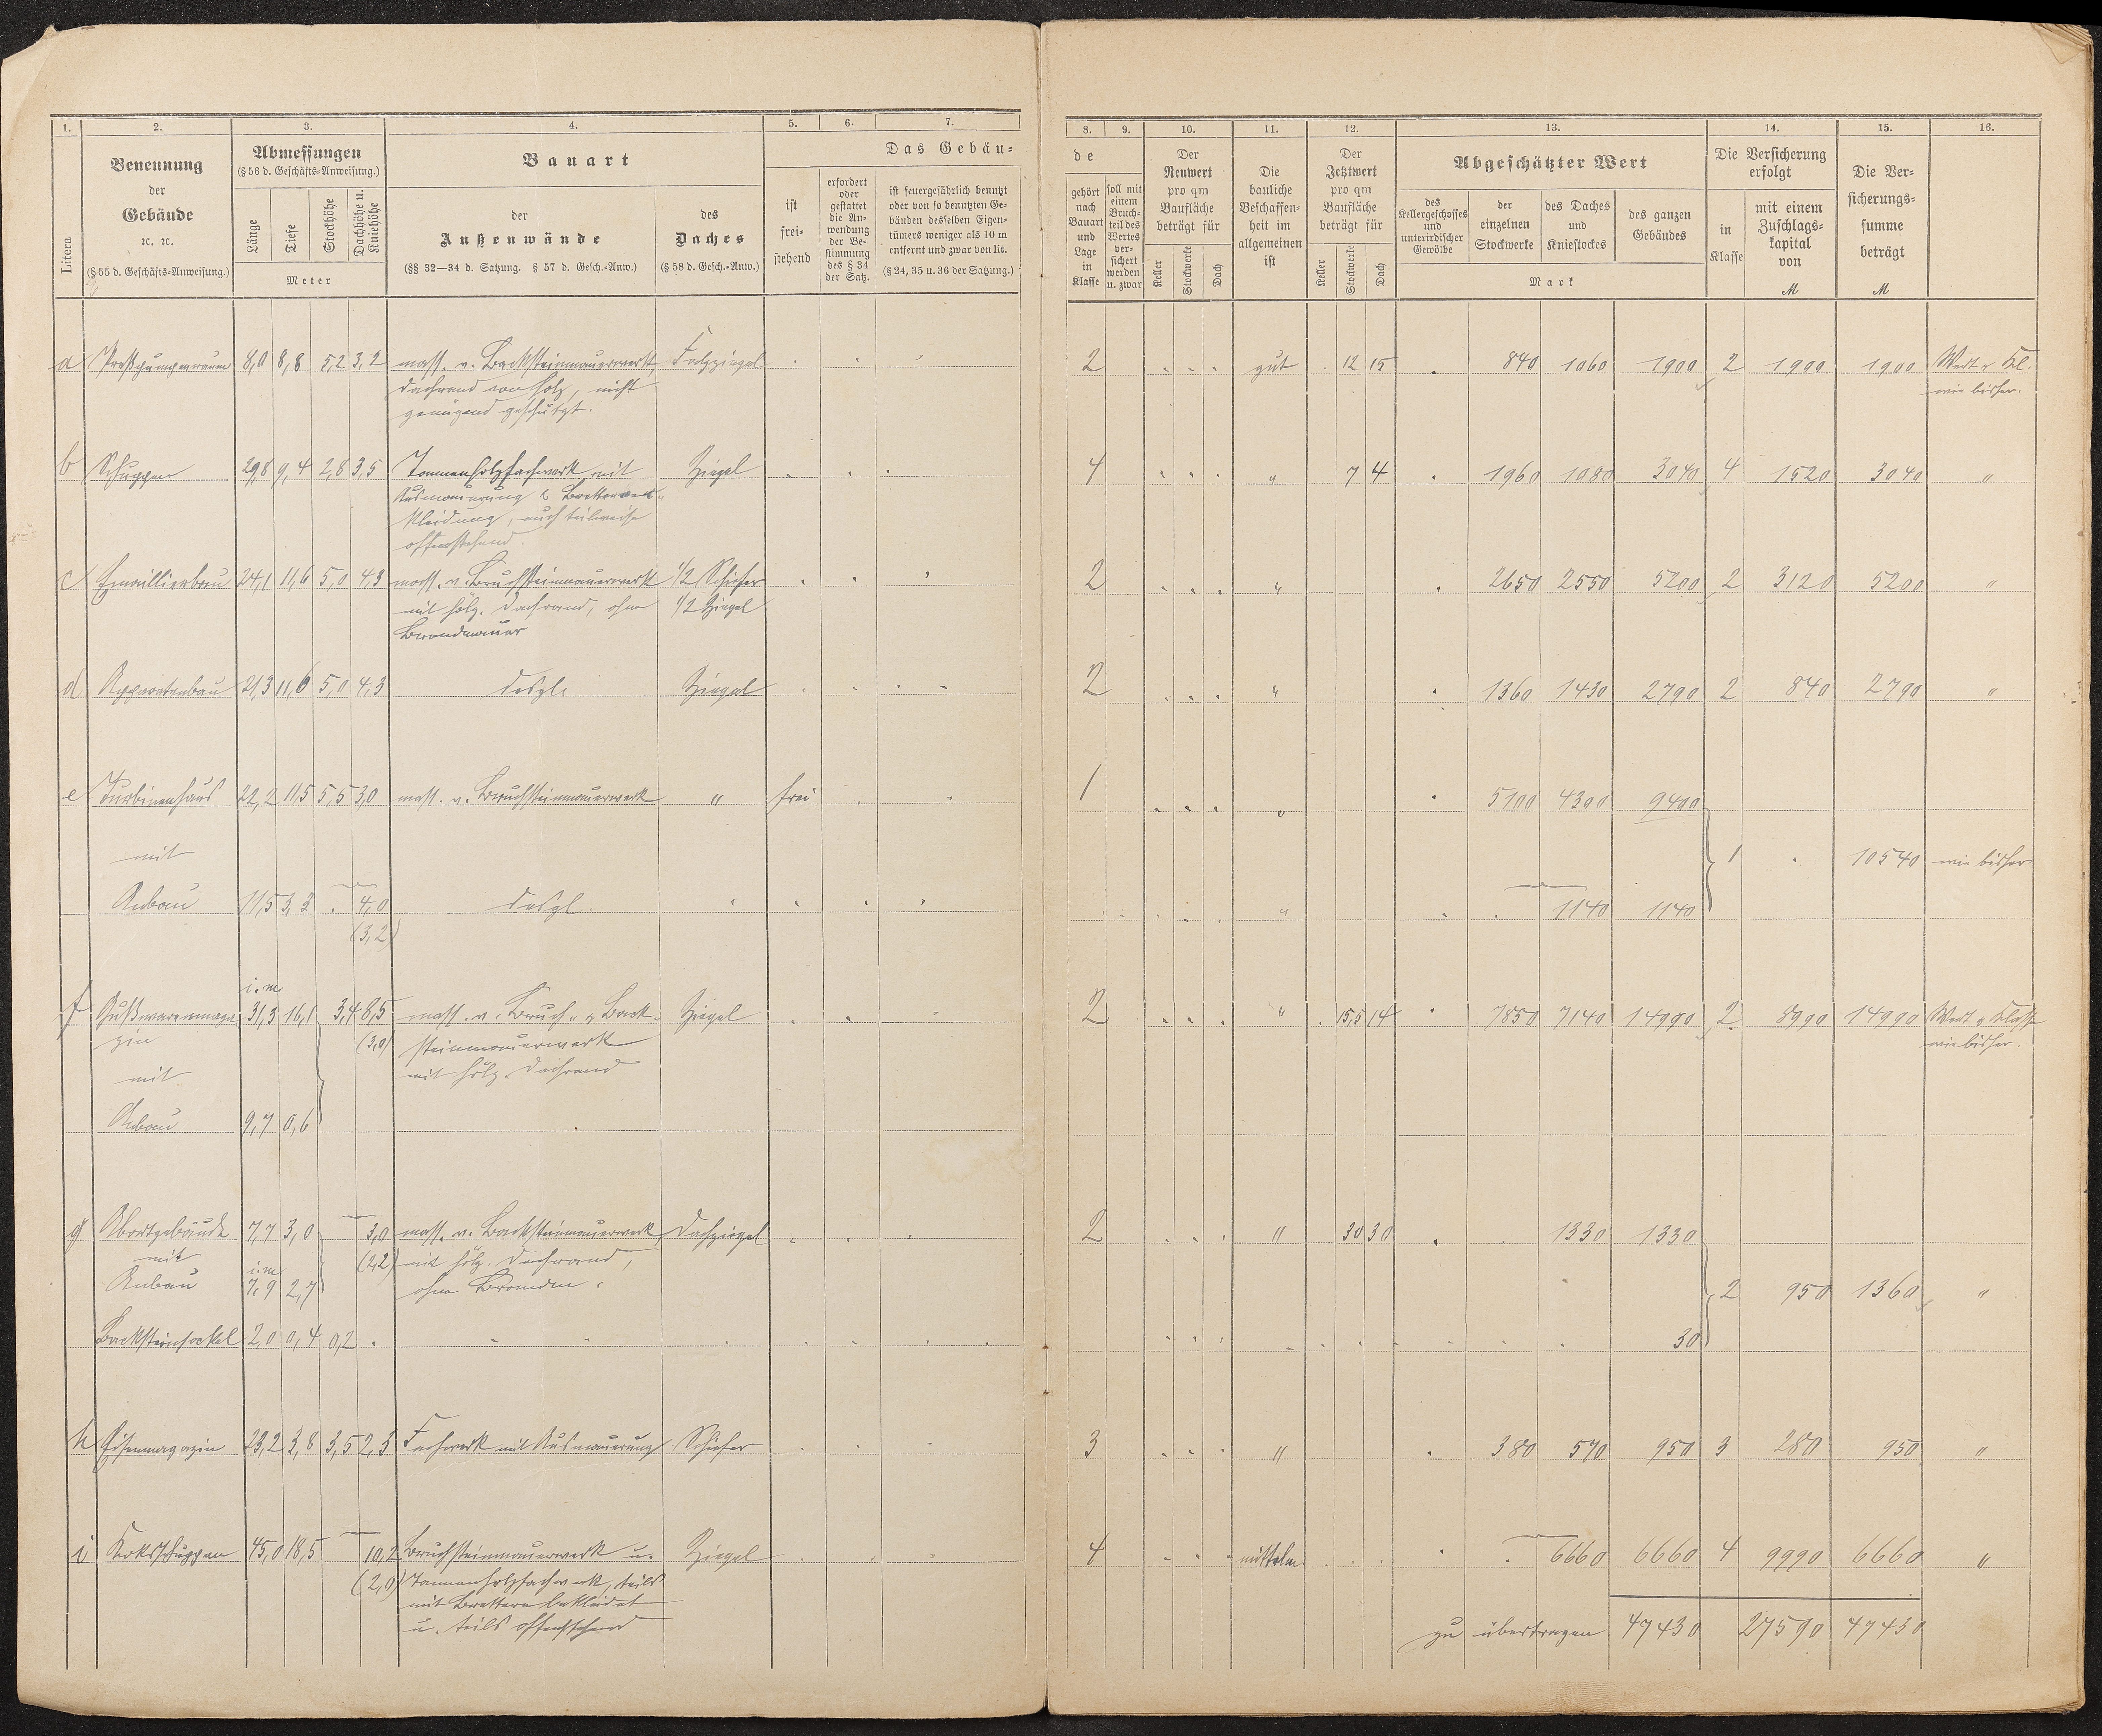 1. 2. 3. 4. 5. 6. 7.
Benennung
der
Gebäude
ꝛc. ꝛc.
(§ 55 d. Geschäfts-Anweisung.)
Litera
Abmessungen
(§ 56 d. Geschäfts-Anweisung.)
Länge Tiefe Stockhöhe Dachhöhe u. Kniehöhe
Meter
Bauart
der
Außenwände
(§§ 32—34 d. Satzung. § 57 d. Gesch.-Anw.)
des
Daches
(§ 58 d. Gesch.-Anw.)
Das Gebäu-
ist
frei-
stehend
erfordert
oder
gestattet
die An-
wendung
der Be-
stimmung
des § 34
der Satz.
ist feuergefährlich benutzt
oder von so benutzten Ge-
bäuden desselben Eigen-
tümers weniger als 10 m
entfernt und zwar von lit.
(§ 24, 35 u. 36 der Satzung.)
8. 9. 10. 11. 12. 13. 14. 15. 16.
de
gehört
nach
Bauart
und
Lage
in
Klasse
soll mit
einem
Bruch-
teil des
Wertes
ver-
sichert
werden
u. zwar
Der
Neuwert
pro qm
Baufläche
beträgt für
Keller Stockwerke Dach
Die
bauliche
Beschaffen-
heit im
allgemeinen
ist
Der
Jetztwert
pro qm
Baufläche
beträgt für
Keller Stockwerke Dach
Abgeschätzter Wert
des
Kellergeschosses
und
unterirdischer
Gewölbe
der
einzelnen
Stockwerke
des Daches
und
Kniestockes
des ganzen
Gebäudes
Mark
Die Versicherung
erfolgt
in
Klasse
mit einem
Zuschlags-
kapital
von
M
Die Ver-
sicherungs-
summe
beträgt
M
a Preßpumpenraum 8,0 8,8 5,2 3,2 mass. v. Backsteinmauerwerk Falzziegel 2 gut 12 15 840 1060 1900 2 1900 1900 Wert u. Kl.
Dachrand von Holz, nicht wie bisher.
genügend geschützt.
b Schuppen 29,8 9,4 2,8 3,5 Tannenholzfachwerk mit Ziegel 4 " 7 4 1960 1080 3040 4 1520 3040 "
Ausmauerung & Bretterver-
kleidung, auch teilweise
offenstehend.
c Emaillierbau 24,1 11,6 5,0 4,3 mass. v. Bruchsteinmauerwerk 1/2 Schiefer 2 " 2650 2550 5200 2 3120 5200 "
mit hölz. Dachrand, ohne 1/2 Ziegel
Brandmauer
d Apparatenbau 21,3 11,6 5,0 4,3 desgl. Ziegel 2 " 1360 1430 2790 2 840 2790 "
e Turbinenhaus 22,2 11,5 5,5 3,0 mass. v. Bruchsteinmauerwerk " frei 1 " 5100 4300 9400
mit 1 10540 wie bisher
Anbau 11,5 3,3 4,0 desgl. " 1140 1140
(3,2)
i. m.
f Gußwarenmaga- 31,3 16,1 3,4 8,5 mass. v. Bruch- & Back- Ziegel 2 " 15,5 14 7850 7140 14990 2 8990 14990 Wert & Klasse
zin (3,0) steinmauerwerk wie bisher.
mit mit hölz. Dachrand
Anbau 9,7 0,6
g Abortgebäude 7,7 3,0 3,0 mass. v. Backsteinmauerwerk Dachziegel 2 " 30 30 1330 1330
mit i. m. (2,2) mit hölz. Dachrand,
Anbau 7,9 2,7 ohne Brandm. 2 950 1360 "
Backsteinsockel 2,0 0,4 0,2 30
h Eisenmagazin 23,2 3,8 3,5 2,3 Fachwerk mit Ausmauerung Schiefer 3 " 380 570 950 3 280 950 "
i Koksschuppen 45,0 18,5 10,2 Bruchsteinmauerwerk u. Ziegel 4 mittelm. 6660 6660 4 9990 6660 "
(2,0) Tannenholzfachwerk, teils
mit Brettern bekleidet
u. teils offenstehend
zu übertragen 47430 27590 47430